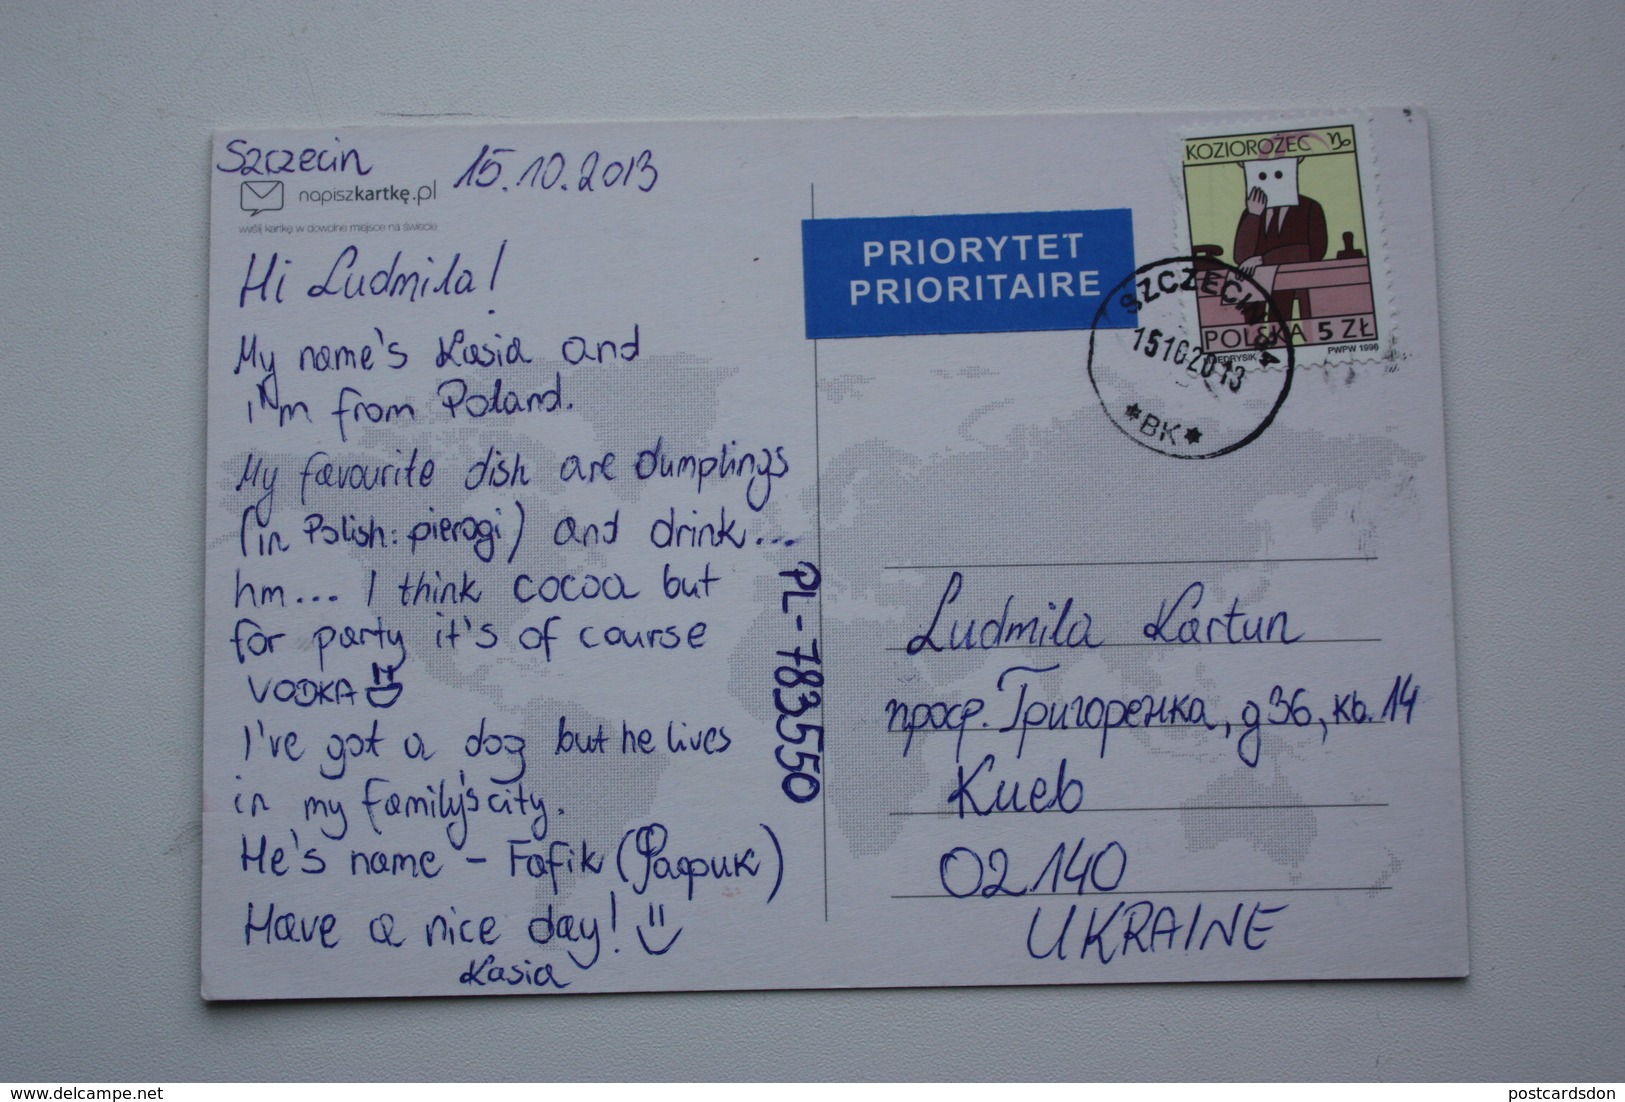 Szczecin 15.10.2013
napiszkartkę.pl
wyślij kartkę w dowolne miejsce na świecie
Hi Ludmila!
My name's Kasia and
I'm from Poland.
My favourite dish are dumplings
(in Polish: pierogi) and drink...
hm... I think cocoa but
for party it's of course
VODKA
I've got a dog but he lives
in my family's city.
He's name - Fafik (Фафик)
Have a nice day!
Kasia
PL-783550
PRIORYTET
PRIORITAIRE
KOZIOROŻEC
POLSKA 5 ZŁ
PWPW 1996
SZCZECIN
15102013
*BK*
Ludmila Kartun
просп. Григоренка, д 36, кв. 14
Киев
02140
UKRAINE
www.delcampe.net
postcardsdon